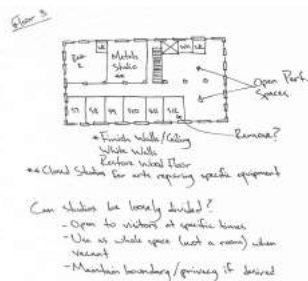 Floor 3
Metals
Studio
**
Open Perf.
Spaces
S7 S8 S9 S10 S11 S12
Remove?
*Finish Walls/Ceiling
White Walls
Restore Wood Floor
** Closed Studios for arts requiring specific equipment
Can studios be loosely divided?
- Open to visitors at specific times
- Use as whole space (not a room) when
vacant
- Maintain boundary/privacy if desired